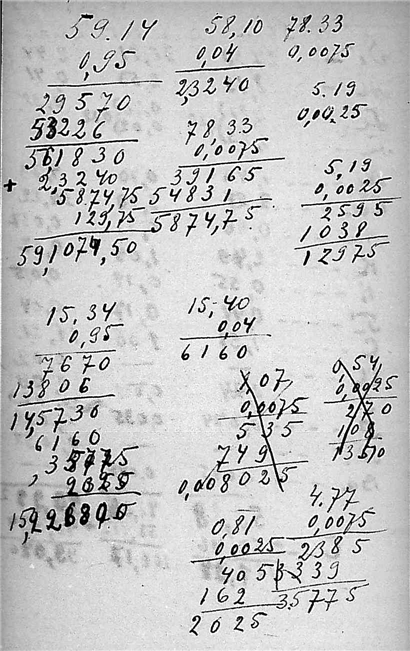 59.14
0,95
29570
53226
561830
+ 2,3240
5874,75
129,75
59,1074,50
58,10
0,04
2,3240
78,33
0,0075
39165
54831
5874,75
78.33
0,0075
5.19
0,0025
5,19
0,0025
2595
1038
12975
15,34
0,95
7670
13806
14,5730
6160
15,40
0,04
6160
1,07,
0,0075
535
749
0,008025
0,54,
0,0025
270
108
1350
0,81
0,0025
405
162
2025
4.77
0,0075
2385
3339
35775